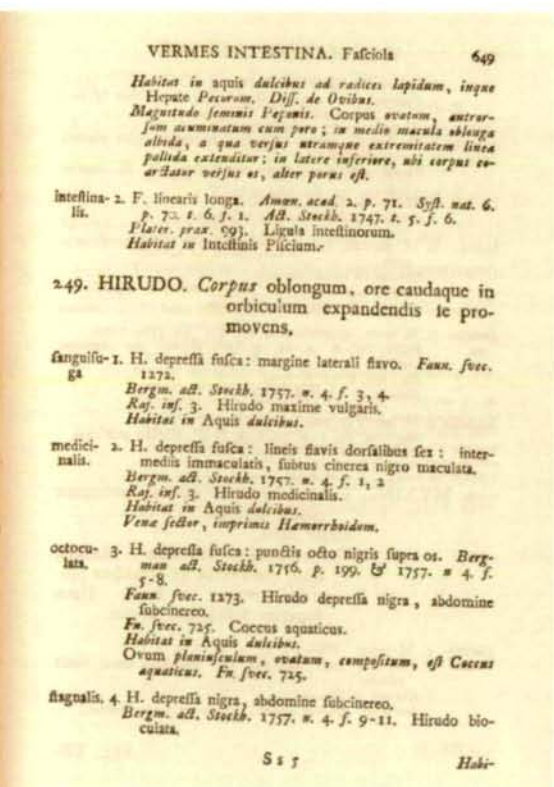 VERMES INTESTINA. Faſciola 649
Habitat in aquis dulcibus ad radices lapidum, inque
Hepate Pecorum. Diſſ. de Ovibus.
Magnitudo ſeminis Peponis. Corpus ovatum, antror-
ſum acuminatum cum poro; in medio macula oblonga
albida, a qua verſus utramque extremitatem linea
palida extenditur; in latere inferiore, ubi corpus co-
arctatur verſus os, alter porus eſt.
inteſtina- 2. F. linearis longa. Amœn. acad. 2. p. 71. Syſt. nat. 6.
lis. p. 70. t. 6. f. 1. Act. Stockh. 1747. t. 5. f. 6.
Plater. prax. 993. Ligula inteſtinorum.
Habitat in Inteſtinis Piſcium.
249. HIRUDO. Corpus oblongum, ore caudaque in
orbiculum expandendis ſe pro-
movens.
ſanguiſu- 1. H. depreſſa fuſca: margine laterali flavo. Faun. ſvec.
ga 1272.
Bergm. act. Stockh. 1757. n. 4. f. 3, 4.
Raj. inſ. 3. Hirudo maxime vulgaris.
Habitat in Aquis dulcibus.
medici- 2. H. depreſſa fuſca: lineis flavis dorſalibus ſex: inter-
nalis. mediis immaculatis, ſubtus cinerea nigro maculata.
Bergm. act. Stockh. 1757. n. 4. f. 1, 2
Raj. inſ. 3. Hirudo medicinalis.
Habitat in Aquis dulcibus.
Venæ ſector, imprimis Hæmorrhoidum.
octocu- 3. H. depreſſa fuſca: punctis octo nigris ſupra os. Berg-
lata. man act. Stockh. 1756. p. 199. & 1757. n 4. f.
5-8.
Faun. ſvec. 1273. Hirudo depreſſa nigra, abdomine
ſubcinereo.
Fn. ſvec. 725. Coccus aquaticus.
Habitat in Aquis dulcibus.
Ovum planiuſculum, ovatum, compoſitum, eſt Coccus
aquaticus. Fn. ſvec. 725.
ſtagnalis. 4. H. depreſſa nigra, abdomine ſubcinereo.
Bergm. act. Stockh. 1757. n. 4. f. 9-11. Hirudo bio-
culata.
S s 5 Habi-